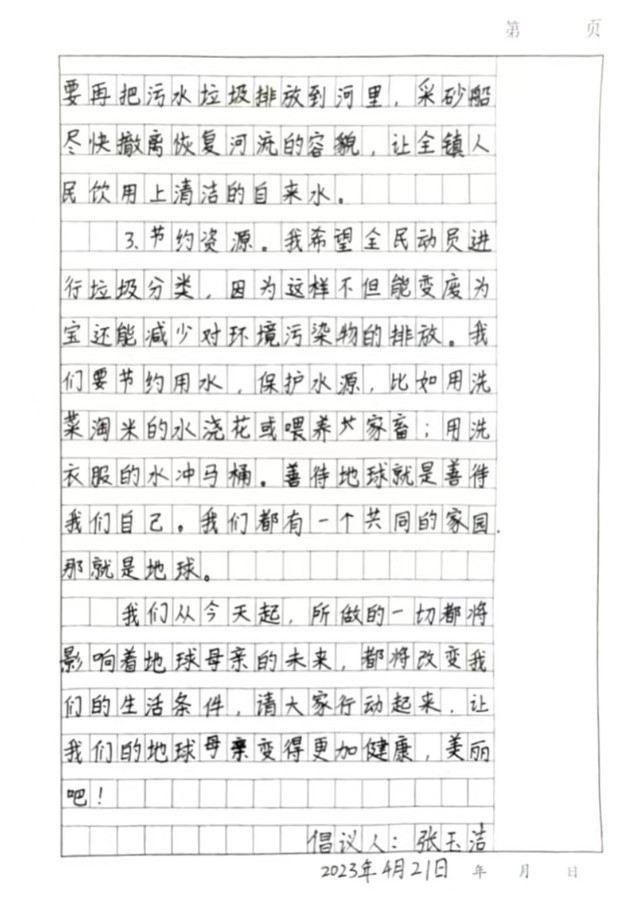 第 页
要再把污水垃圾排放到河里，采砂船
尽快撤离恢复河流的容貌，让全镇人
民饮用上清洁的自来水。
3.节约资源。我希望全民动员进
行垃圾分类，因为这样不但能变废为
宝还能减少对环境污染物的排放。我
们要节约用水，保护水源，比如用洗
菜淘米的水浇花或喂养家畜；用洗
衣服的水冲马桶。善待地球就是善待
我们自己。我们都有一个共同的家园，
那就是地球。
我们从今天起，所做的一切都将
影响着地球母亲的未来，都将改变我
们的生活条件，请大家行动起来，让
我们的地球母亲变得更加健康，美丽
吧！
倡议人：张玉洁
2023年4月21日 年 月 日